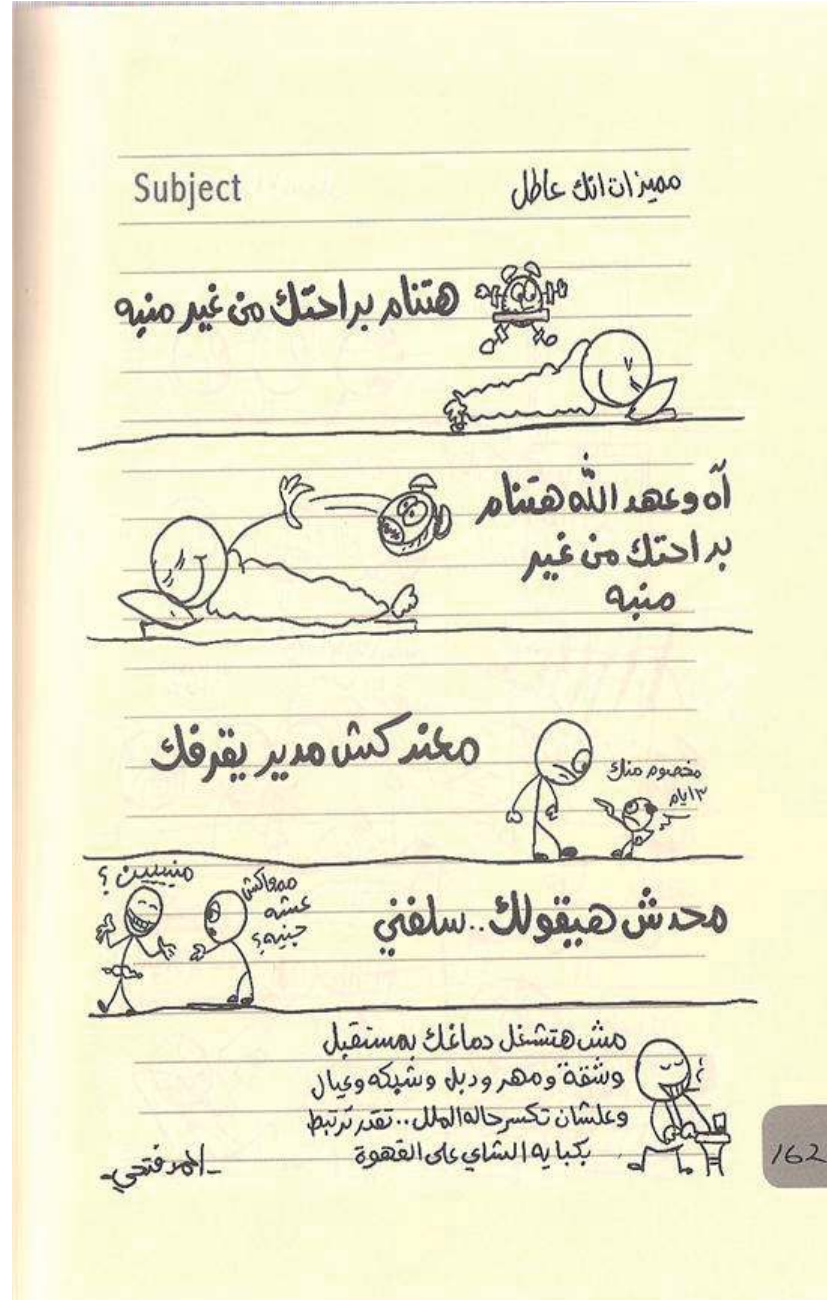 Subject
مميزات انك عاطل
هتنام براحتك من غير منبه
آه وعهد الله هتنام
براحتك من غير
منبه
معندكش مدير يقرفك
مخصوم منك
٣ ايام
محدش هيقولك..سلفني
ممعاكش
عشه
جنيه؟
منييين ؟
مش هتشغل دماغك بمستقبل
وشقة ومهر ودبل وشبكه وعيال
وعلشان تكسر حاله الملل..تقدر ترتبط
بكبايه الشاي على القهوة
-احمد فتحي-
162